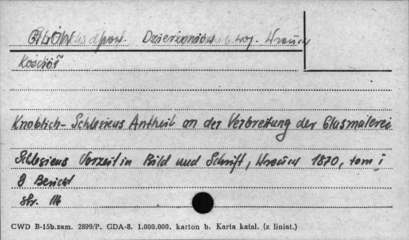 GILÓW pow. Dzierżoniów woj. Wrocław
Kościół
Knoblich - Schlesiens Antheil an der Verbreitung der Glasmalerei
Schlesiens Vorzeit in Bild und Schrift, Wrocław 1870, tom I
9 Bericht
str. 114
CWD B-15b.zam. 2899/P. GDA-8. 1.000.000. karton b. Karta katal. (z liniat.)